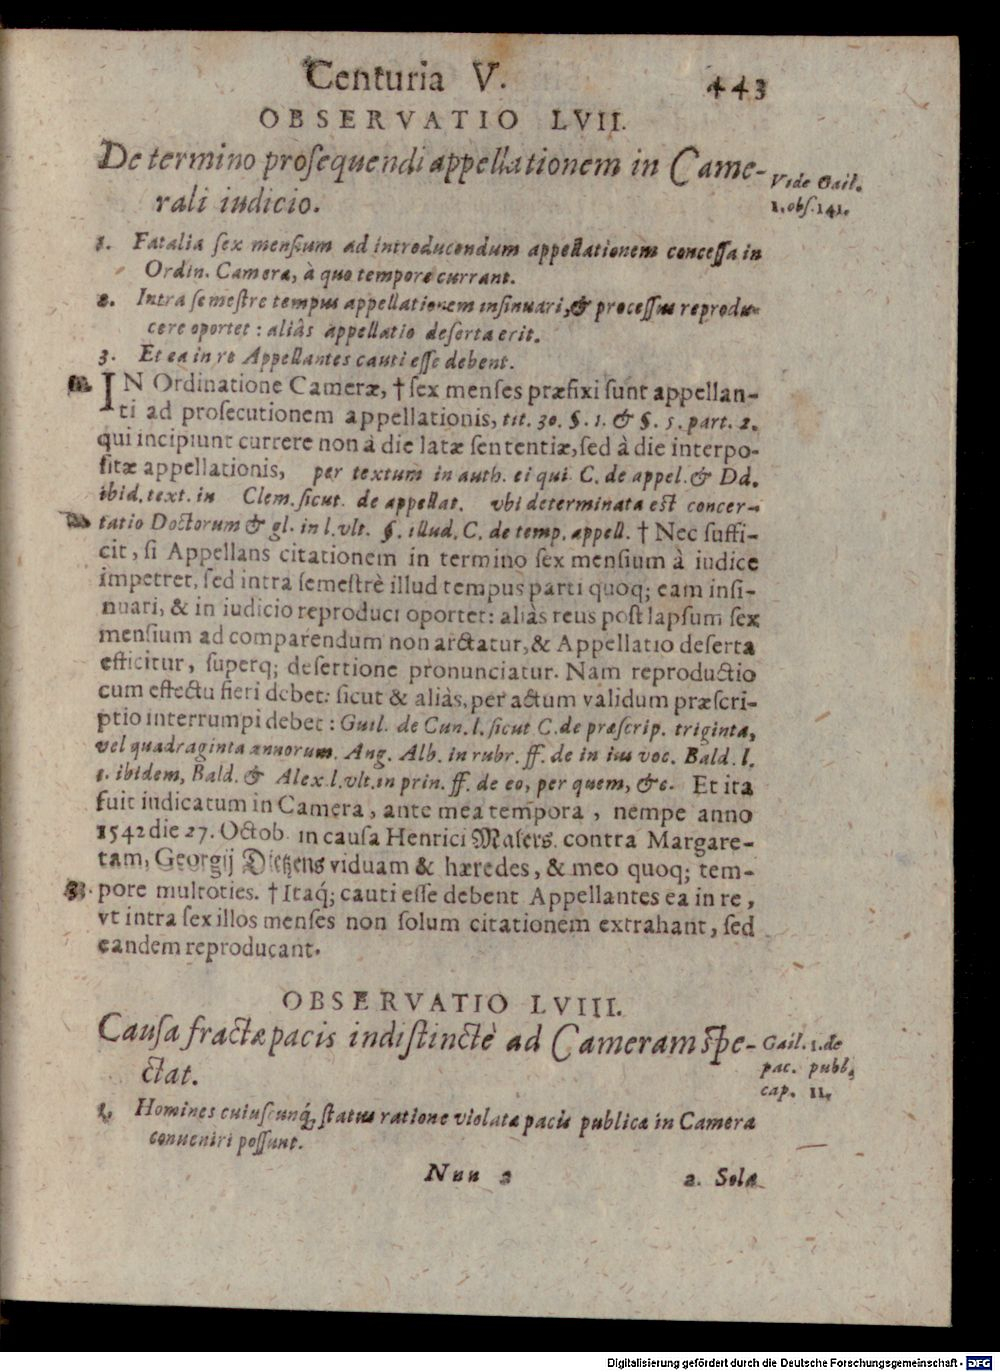 Centuria V. 443
OBSERVATIO LVII.
De termino proſequendi appellationem in Came-
rali iudicio.
Vide Gail.
1. obſ. 141.
1. Fatalia ſex menſium ad introducendum appellationem conceſſa in
Ordin. Camera, à quo tempore currant.
2. Intra ſemeſtre tempus appellationem inſinuari, & proceſſus reprodu-
cere oportet : aliàs appellatio deſerta erit.
3. Et ea in re Appellantes cauti eſſe debent.
IN Ordinatione Cameræ, † ſex menſes præfixi ſunt appellan-
ti ad proſecutionem appellationis, tit. 30. §. 1. & §. 5. part. 2.
qui incipiunt currere non à die latæ ſententiæ, ſed à die interpo-
ſitæ appellationis, per textum in auth. ei qui C. de appel. & Dd.
ibid. text. in Clem. ſicut. de appellat. vbi determinata est concer-
tatio Doctorum & gl. in l. vlt. §. illud. C. de temp. appell. † Nec ſuffi-
cit, ſi Appellans citationem in termino ſex menſium à iudice
impetret, ſed intra ſemeſtrè illud tempus parti quoq; eam inſi-
nuari, & in iudicio reproduci oportet: aliàs reus poſt lapſum ſex
menſium ad comparendum non arctatur, & Appellatio deſerta
efficitur, ſuperq; deſertione pronunciatur. Nam reproductio
cum effectu fieri debet: ſicut & aliàs, per actum validum præſcri-
ptio interrumpi debet : Guil. de Cun. l. ſicut C. de præſcrip. triginta,
vel quadraginta annorum. Ang. Alb. in rubr. ff. de in ius voc. Bald. l.
1. ibidem, Bald. & Alex l. vlt. in prin. ff. de eo, per quem, &c. Et ita
fuit iudicatum in Camera, ante mea tempora, nempe anno
1542 die 27. Octob. in cauſa Henrici Maſers. contra Margare-
tam, Georgij Dietzens viduam & hæredes, & meo quoq; tem-
3. pore multoties. † Itaq́; cauti eſſe debent Appellantes ea in re,
vt intra ſex illos menſes non ſolum citationem extrahant, ſed
eandem reproducant.
OBSERVATIO LVIII.
Cauſa fractæ pacis indiſtinctè ad Cameram ſpe-
ctat.
Gail. 1. de
pac. publ.
cap. 11.
1. Homines cuiuſcunq́, ſtatus ratione violatæ pacis publica in Camera
conueniri poſſunt.
Nnn 2 2. Sola
Digitalisierung gefördert durch die Deutsche Forschungsgemeinschaft - DFG